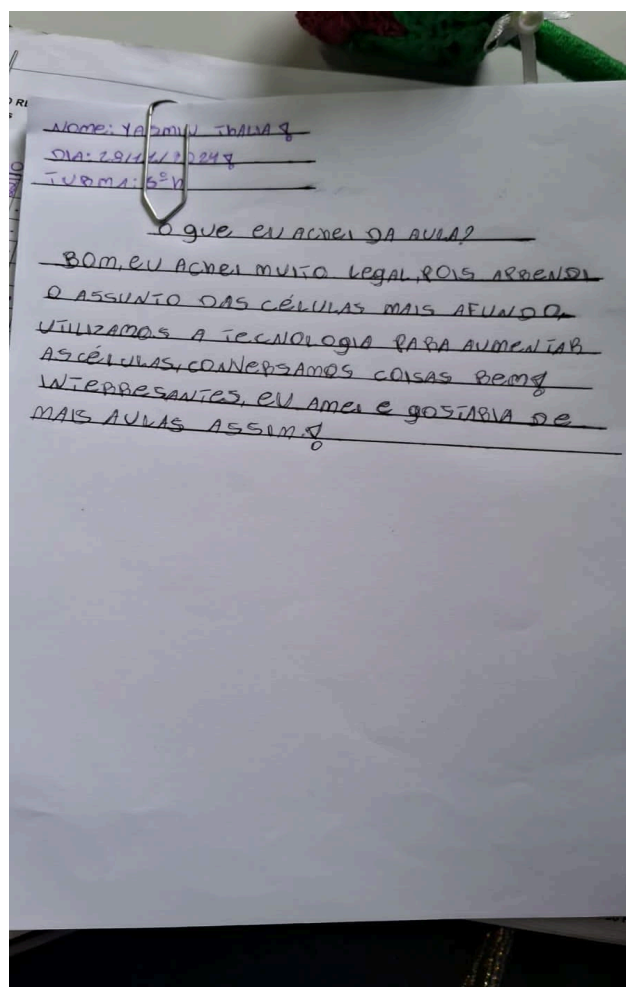 Nome: YASMIN THALIA
DIA: 29/11/2024
TURMA: 6º
O que eu ACHEI DA AULA?
BOM, EU ACHEI MUITO LEGAL, POIS APRENDI
O ASSUNTO DAS CÉLULAS MAIS AFUNDO,
UTILIZAMOS A TECNOLOGIA PARA AUMENTAR
AS CÉLULAS, CONVERSAMOS COISAS BEM
INTERRESANTES, EU AMEI E GOSTARIA DE
MAIS AULAS ASSIM.!